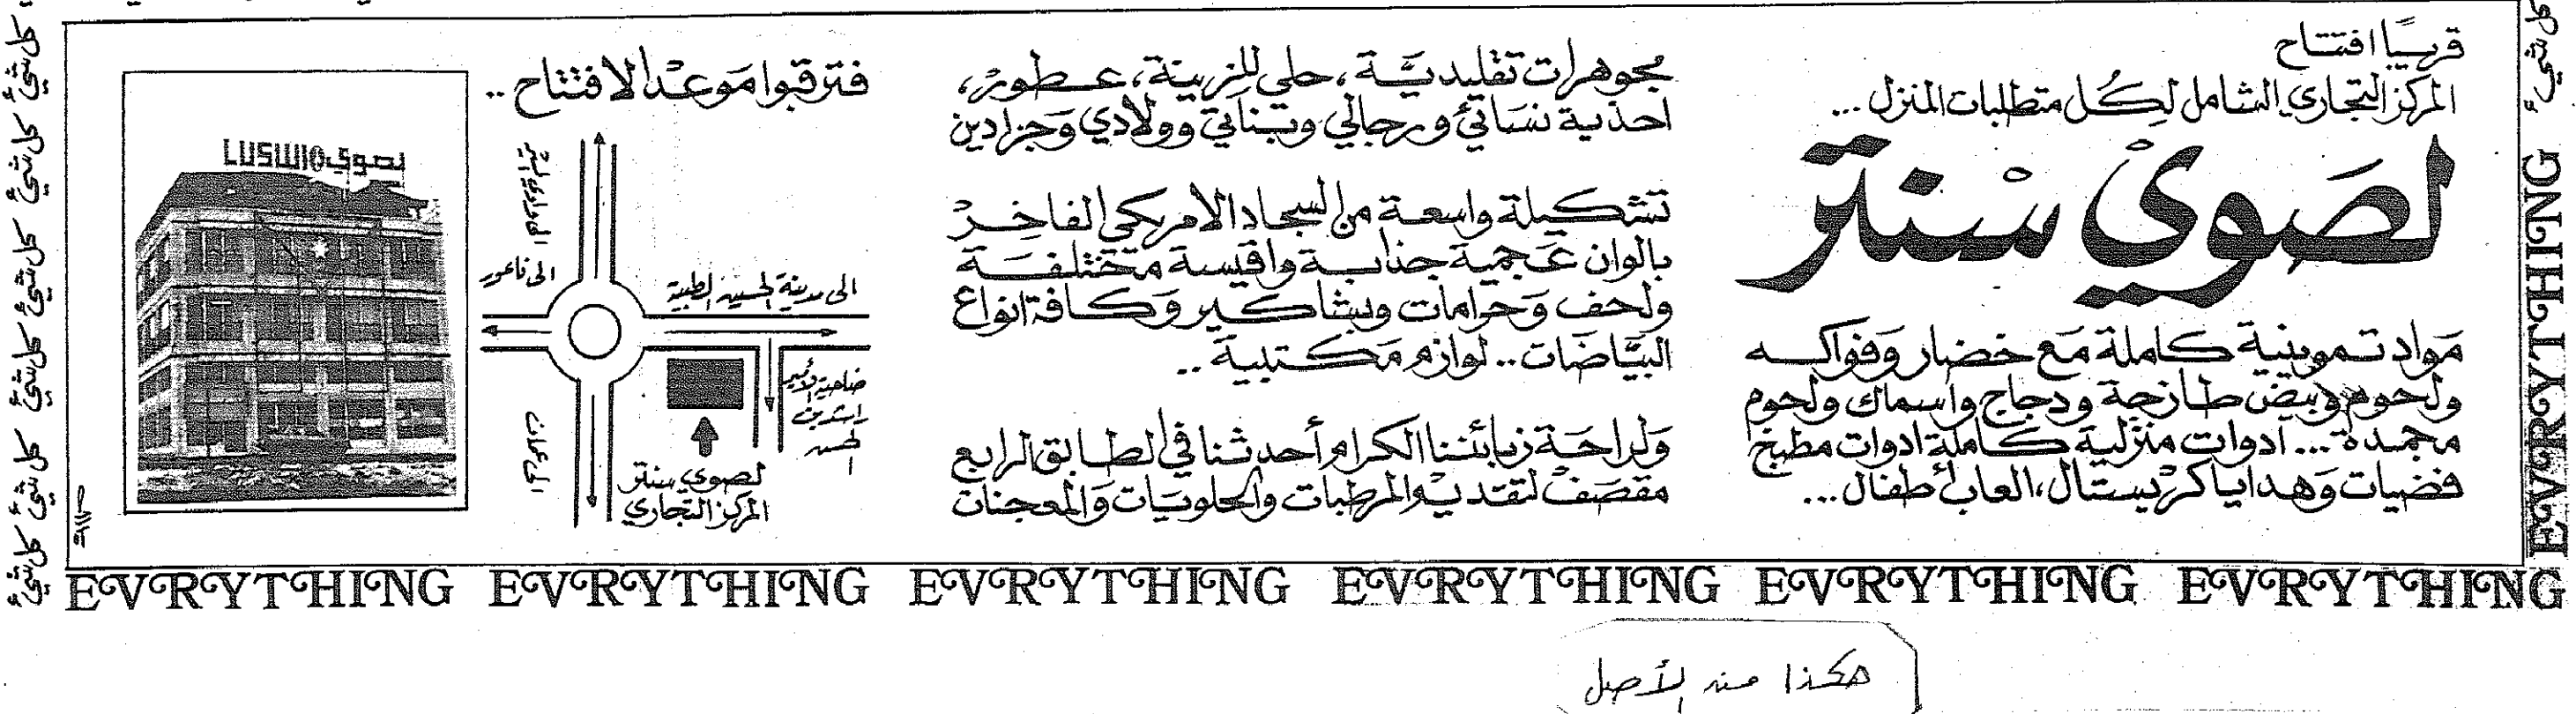 قريبًا افتتاح
المركز التجاري الشامل لِكُل متطلبات المنزل ...
لصَوي سنتر
مَواد تموينية كاملة مَع خضار وَفواكه
ولحوم وبيض طازجة ودجاج واسماك ولحوم
مجمدة ... ادوات منزلية كاملة ادوات مطبخ
فضيات وَهدايا كريستال، العاب أطفال ...
مجوهرات تقليديَّة، حلي للزينة، عطور،
احذية نسَائي ورجالي وبناتي وولادي وَجزادين
تشكيلة واسعة من السجاد الامريكي الفاخِر
بالوان عَجمية جذابة واقيسة مختلفة
ولحف وَحرامات وبشاكير وَكافة انواع
البيَّاضات .. لوازم مَكتبية ..
وَلراحَة زبائننا الكرام أحدثنا في الطابق الرابع
مقصَف لتقديم المرطبات والحلويات وَالمعجنات
فترقبوا مَوعد الافتتاح ..
الى ناعور
الى مدينة الحسين الطبية
ضاحية الأمير
راشد بن
الحسن
لصوي سنتر
المركز التجاري
LUSWIO لصوي
كل شيئ كل شيئ كل شيئ كل شيئ كل شيئ كل شيئ كل شيئ
كل شيء
EVERYTHING EVERYTHING
EVRYTHING EVRYTHING EVRYTHING EVRYTHING EVRYTHING EVRYTHING
هكذا من الأصل